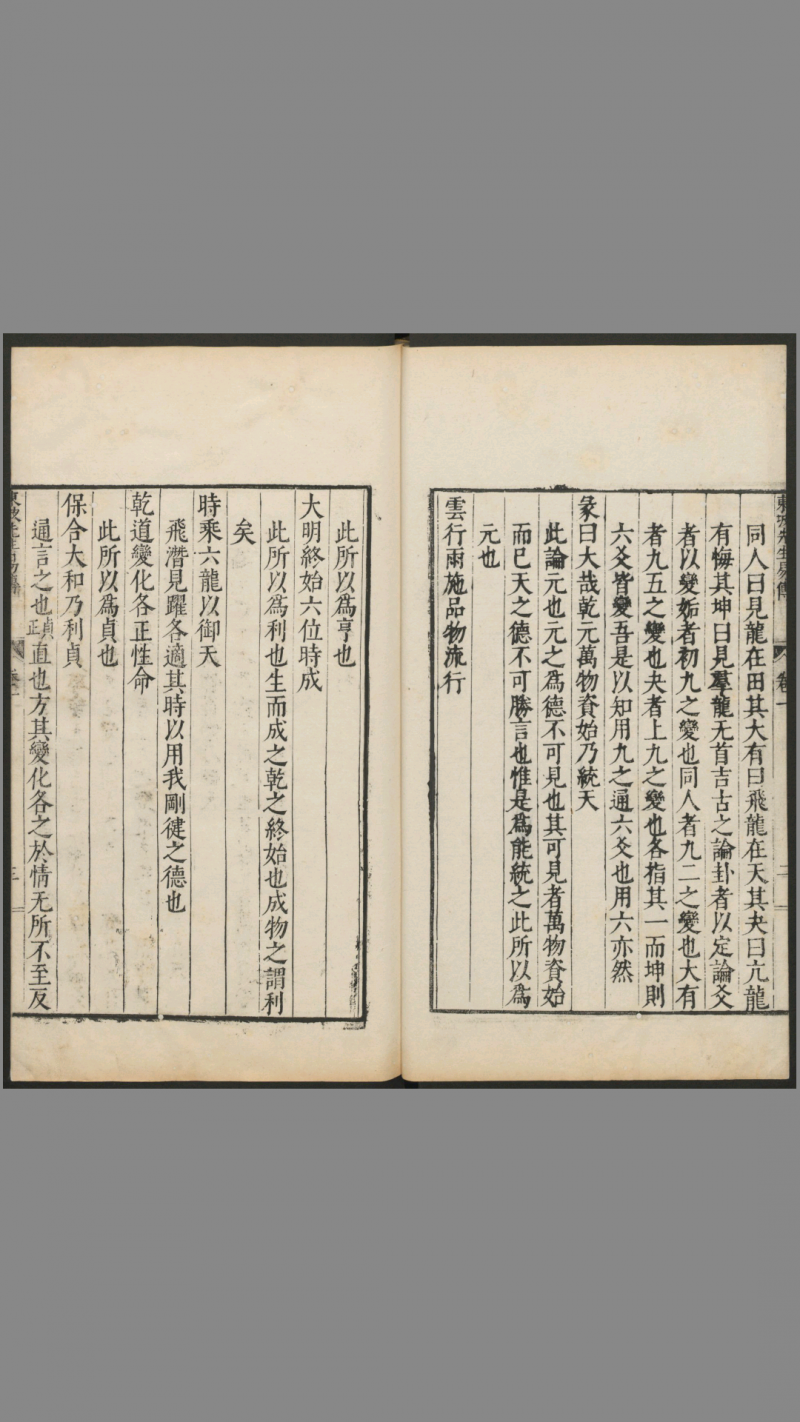 東坡先生易傳 卷一 二
同人曰見龍在田其大有曰飛龍在天其夬曰亢龍
有悔其坤曰見羣龍无首吉古之論卦者以定論爻
者以變姤者初九之變也同人者九二之變也大有
者九五之變也夬者上九之變也各指其一而坤則
六爻皆變吾是以知用九之通六爻也用六亦然
彖曰大哉乾元萬物資始乃統天
此論元也元之為德不可見也其可見者萬物資始
而已天之德不可勝言也惟是為能統之此所以為
元也
雲行雨施品物流行
此所以為亨也
大明終始六位時成
此所以為利也生而成之乾之終始也成物之謂利
矣
時乘六龍以御天
飛潛見躍各適其時以用我剛健之德也
乾道變化各正性命
此所以為貞也
保合大和乃利貞
通言之也貞正直也方其變化各之於情无所不至反
東坡先生易傳 卷一 三